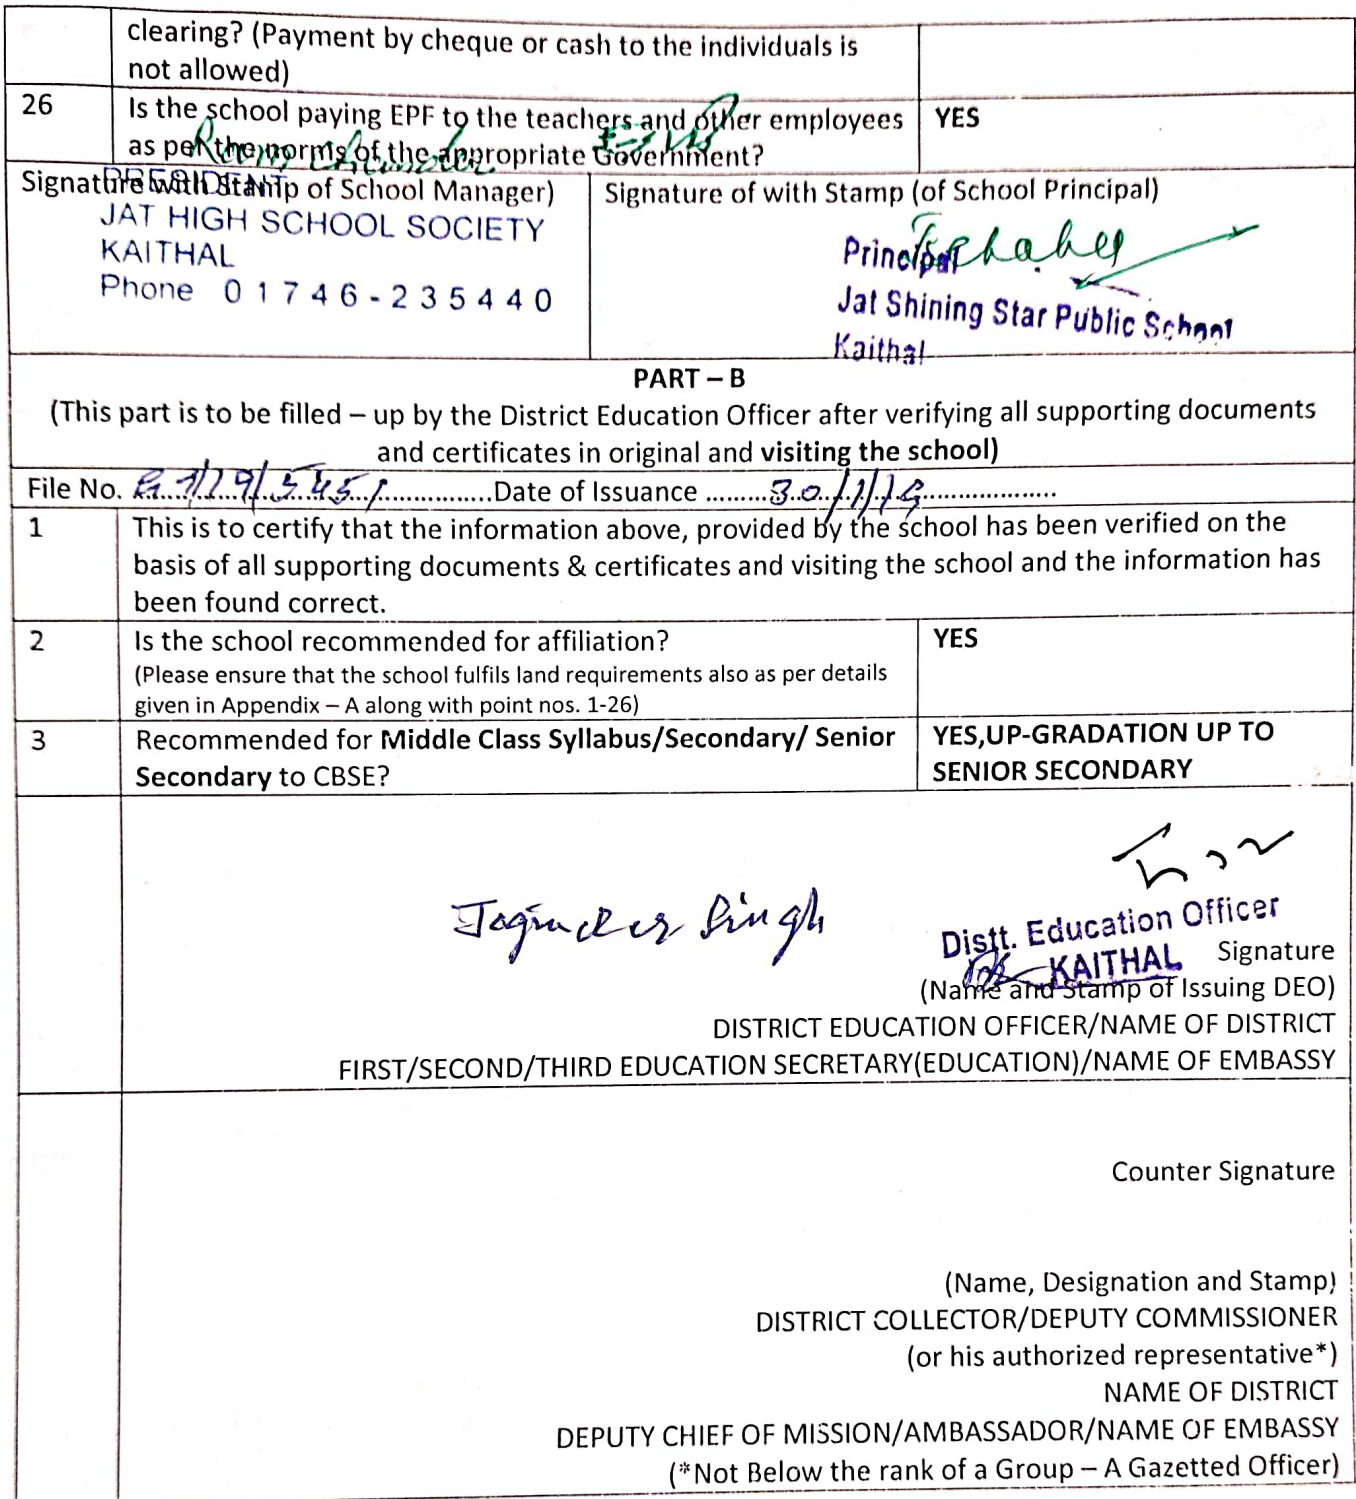 clearing? (Payment by cheque or cash to the individuals is
not allowed)
26 Is the school paying EPF to the teachers and other employees YES
as per the norms of the appropriate Government?
Signature with Stamp of School Manager) Signature of with Stamp (of School Principal)
PRESIDENT
JAT HIGH SCHOOL SOCIETY
KAITHAL
Phone 01746-235440
Principal
Jat Shining Star Public School
Kaithal
PART – B
(This part is to be filled – up by the District Education Officer after verifying all supporting documents
and certificates in original and visiting the school)
File No. ....................Date of Issuance .........30/1/19....................
1 This is to certify that the information above, provided by the school has been verified on the
basis of all supporting documents & certificates and visiting the school and the information has
been found correct.
2 Is the school recommended for affiliation? YES
(Please ensure that the school fulfils land requirements also as per details
given in Appendix – A along with point nos. 1-26)
3 Recommended for Middle Class Syllabus/Secondary/ Senior YES,UP-GRADATION UP TO
Secondary to CBSE? SENIOR SECONDARY
Joginder Singh
Distt. Education Officer
KAITHAL
Signature
(Name and Stamp of Issuing DEO)
DISTRICT EDUCATION OFFICER/NAME OF DISTRICT
FIRST/SECOND/THIRD EDUCATION SECRETARY(EDUCATION)/NAME OF EMBASSY
Counter Signature
(Name, Designation and Stamp)
DISTRICT COLLECTOR/DEPUTY COMMISSIONER
(or his authorized representative*)
NAME OF DISTRICT
DEPUTY CHIEF OF MISSION/AMBASSADOR/NAME OF EMBASSY
(*Not Below the rank of a Group – A Gazetted Officer)